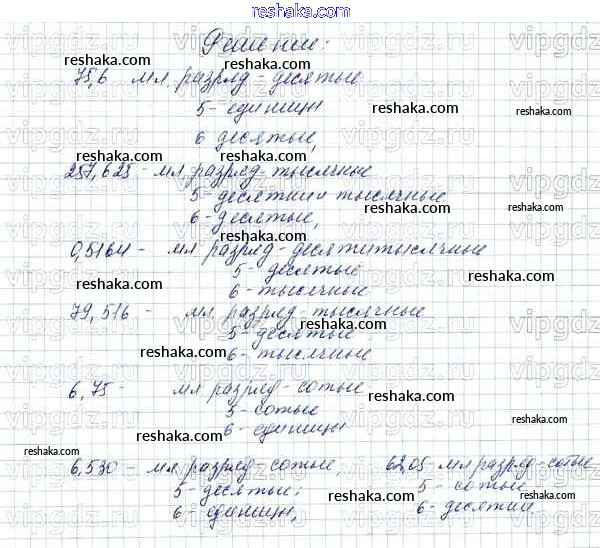 reshaka.com
Решение:
75,6 мл. разряд - десятые
5 - единицы
6 десятые,
257,625 - мл. разряд - тысячные
5 - десятки и тысячные
6 - десятые,
0,5164 - мл разряд - десятитысячные
5 - десятые
6 - тысячные
79,516 - мл разряд - тысячные
5 - десятые
6 - тысячные
6,75 - мл разряд - сотые
5 - сотые
6 - единицы
6,530 - мл. разряд - сотые,
5 - десятые;
6 - единицы,
62,05 мл разряд - сотые
5 - сотые
6 - десятки